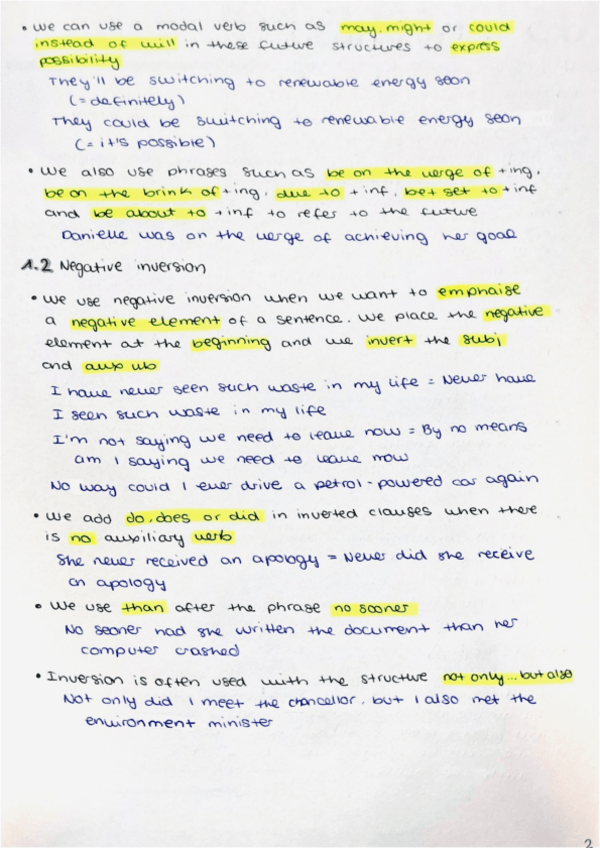 • we can use a modal verb such as may, might or could
instead of will in these future structures to express
possibility
They'll be switching to renewable energy soon
(= definitely)
They could be switching to renewable energy soon
(= it's possible)
• we also use phrases such as be on the verge of +ing,
be on the brink of +ing, due to +inf, be+ set to +inf
and be about to +inf to refer to the future
Danielle was on the verge of achieving her goal
1.2 Negative inversion
• we use negative inversion when we want to emphaise
a negative element of a sentence. We place the negative
element at the beginning and we invert the subj
and aux vb
I have never seen such waste in my life = Never have
I seen such waste in my life
I'm not saying we need to leave now = By no means
am I saying we need to leave now
No way could I ever drive a petrol-powered car again
• we add do, does or did in inverted clauses when there
is no auxiliary verb
She never received an apology = Never did she receive
an apology
• We use than after the phrase no sooner
No sooner had she written the document than her
computer crashed
• Inversion is often used with the structure not only... but also
Not only did I meet the chancellor, but I also met the
environment minister
2